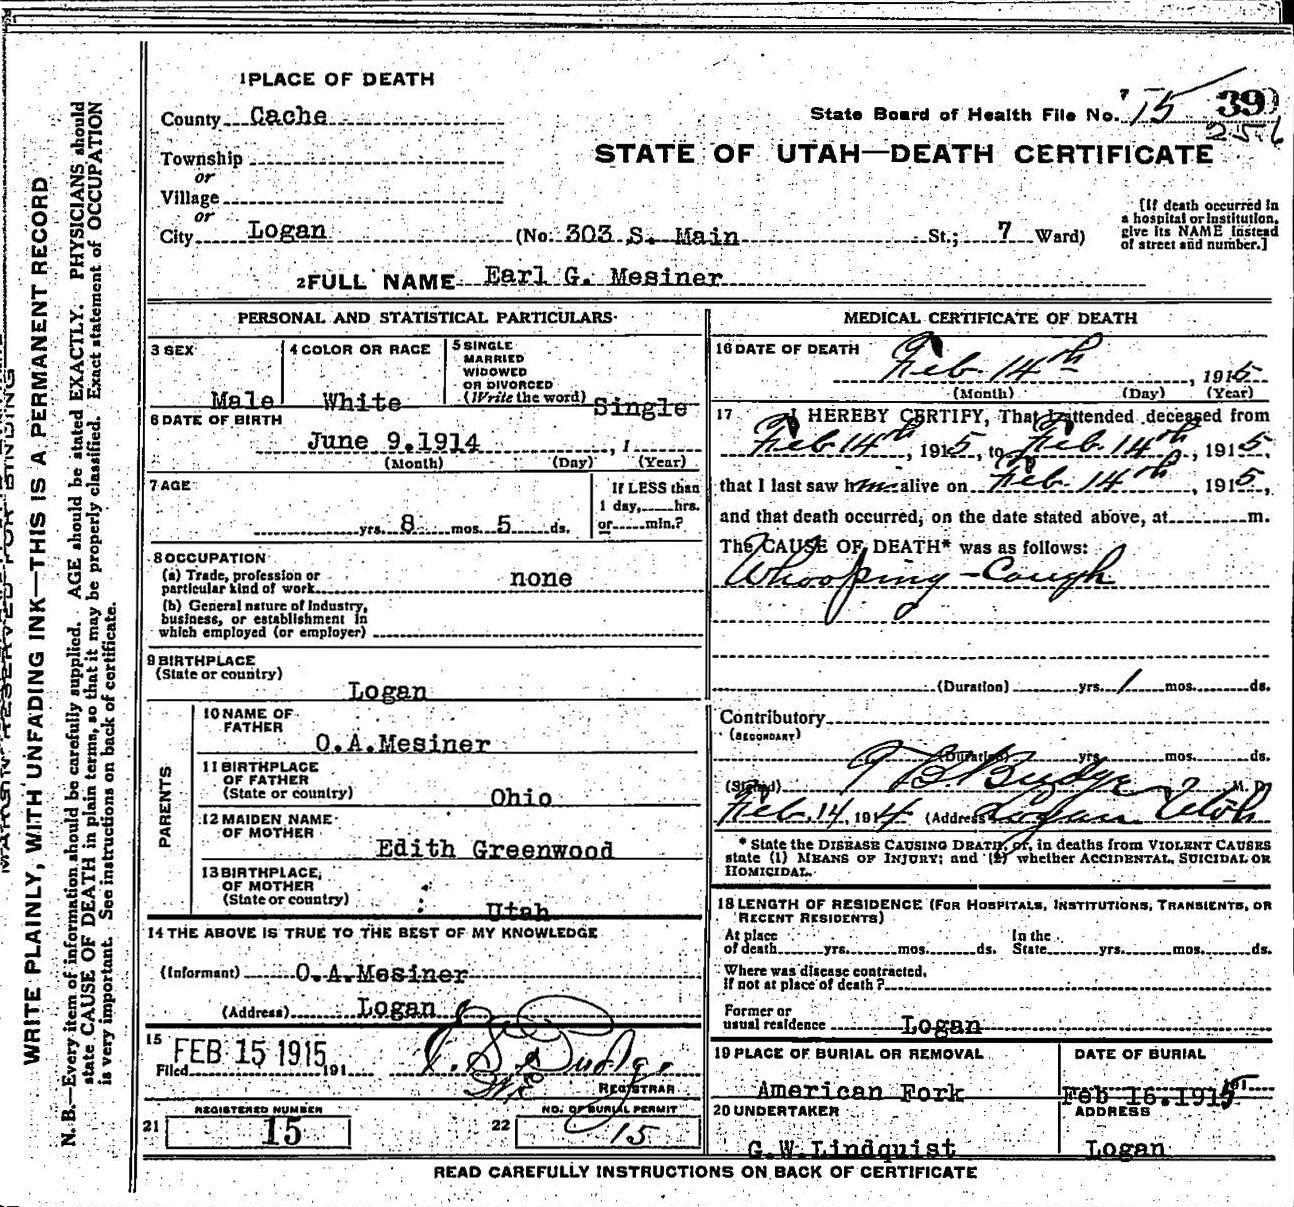 1 PLACE OF DEATH
County Cache
State Board of Health File No. 15 39
256
STATE OF UTAH—DEATH CERTIFICATE
Township
or
Village
or
City Logan (No. 303 S. Main St.; 7 Ward)
[If death occurred in
a hospital or institution,
give its NAME instead
of street and number.]
2 FULL NAME Earl G. Mesiner
PERSONAL AND STATISTICAL PARTICULARS
3 SEX Male
4 COLOR OR RACE White
5 SINGLE
MARRIED
WIDOWED
OR DIVORCED
(Write the word) Single
6 DATE OF BIRTH
June 9.1914 , 1
(Month) (Day) (Year)
7 AGE
yrs. 8 mos. 5 ds.
If LESS than
1 day, hrs.
or min.?
8 OCCUPATION
(a) Trade, profession or
particular kind of work none
(b) General nature of Industry,
business, or establishment in
which employed (or employer)
9 BIRTHPLACE
(State or country)
Logan
PARENTS
10 NAME OF
FATHER
O.A.Mesiner
11 BIRTHPLACE
OF FATHER
(State or country) Ohio
12 MAIDEN NAME
OF MOTHER
Edith Greenwood
13 BIRTHPLACE
OF MOTHER
(State or country)
Utah
14 THE ABOVE IS TRUE TO THE BEST OF MY KNOWLEDGE
(Informant) O.A.Mesiner
(Address) Logan
15
Filed FEB 15 1915 191
REGISTRAR
REGISTERED NUMBER
21 15
NO. OF BURIAL PERMIT
22 15
MEDICAL CERTIFICATE OF DEATH
16 DATE OF DEATH
Feb. 14th , 1915
(Month) (Day) (Year)
17 I HEREBY CERTIFY, That I attended deceased from
Feb 14th , 1915, to Feb. 14th , 1915,
that I last saw him alive on Feb. 14th , 1915,
and that death occurred, on the date stated above, at m.
The CAUSE OF DEATH* was as follows:
Whooping-Cough
(Duration) yrs. 1 mos. ds.
Contributory
(SECONDARY)
(Duration) yrs. mos. ds.
(Signed) T B. Budge M. D.
Feb. 14, 1914 (Address) Logan Utah
* State the DISEASE CAUSING DEATH, or, in deaths from VIOLENT CAUSES
state (1) MEANS OF INJURY; and (2) whether ACCIDENTAL, SUICIDAL OR
HOMICIDAL.
18 LENGTH OF RESIDENCE (FOR HOSPITALS, INSTITUTIONS, TRANSIENTS, OR
RECENT RESIDENTS)
At place
of death yrs. mos. ds.
In the
State yrs. mos. ds.
Where was disease contracted,
if not at place of death?
Former or
usual residence Logan
19 PLACE OF BURIAL OR REMOVAL
American Fork
DATE OF BURIAL
Feb 16.1915 191
20 UNDERTAKER
G.W.Lindquist
ADDRESS
Logan
READ CAREFULLY INSTRUCTIONS ON BACK OF CERTIFICATE
MARGIN RESERVED FOR BINDING
WRITE PLAINLY, WITH UNFADING INK—THIS IS A PERMANENT RECORD
N. B.—Every item of information should be carefully supplied. AGE should be stated EXACTLY. PHYSICIANS should
state CAUSE OF DEATH in plain terms, so that it may be properly classified. Exact statement of OCCUPATION
is very important. See instructions on back of certificate.